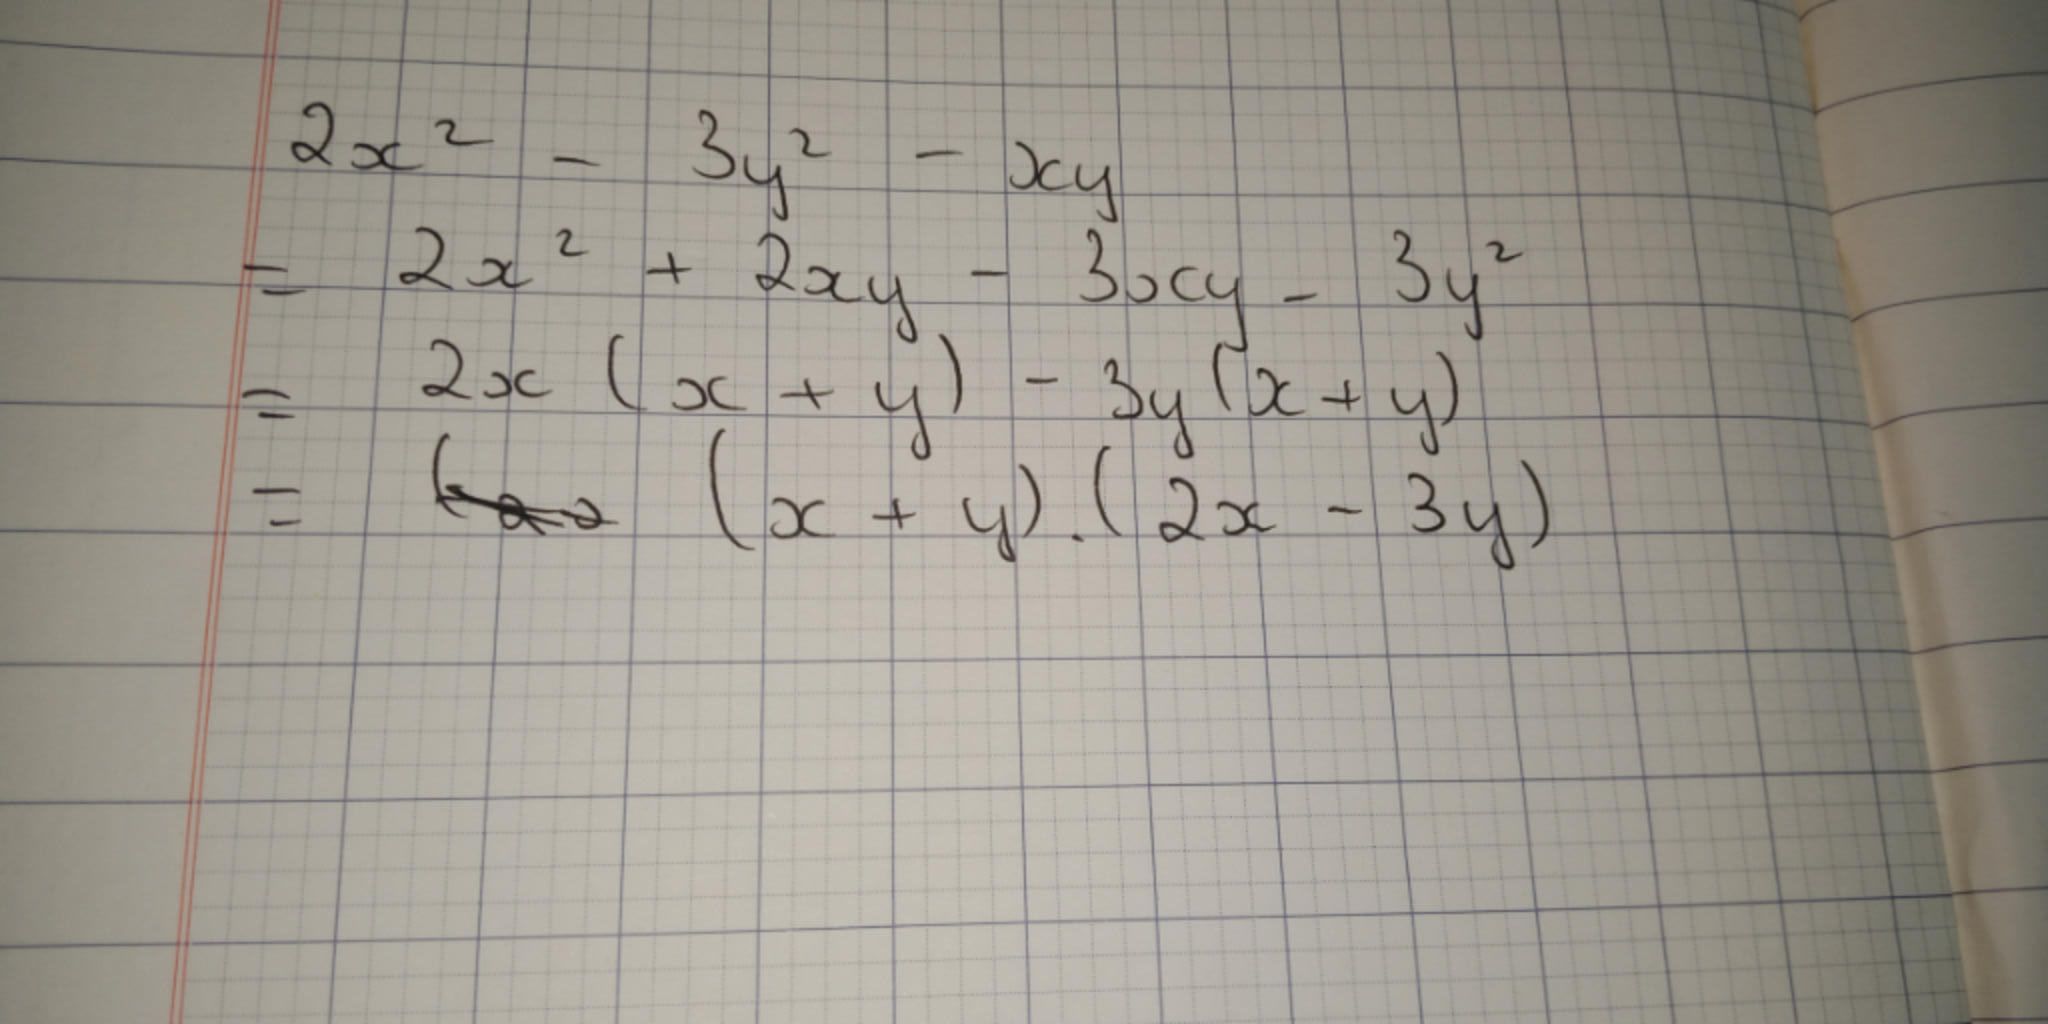 2x² - 3y² - xy
= 2x² + 2xy - 3xy - 3y²
= 2x (x + y) - 3y (x + y)
= (x + y) . (2x - 3y)